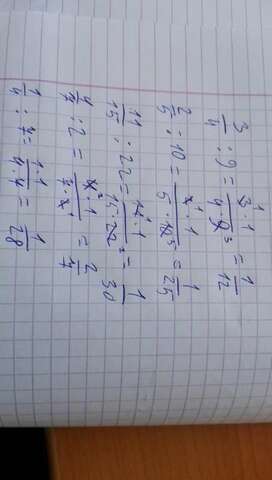 3/4 : 9 = 3·1/4·9 = 1/12
2/5 : 10 = 2·1/5·10 = 1/25
11/15 : 22 = 11·1/15·22 = 1/30
4/7 : 2 = 4·1/7·2 = 2/7
1/4 : 7 = 1·1/4·7 = 1/28